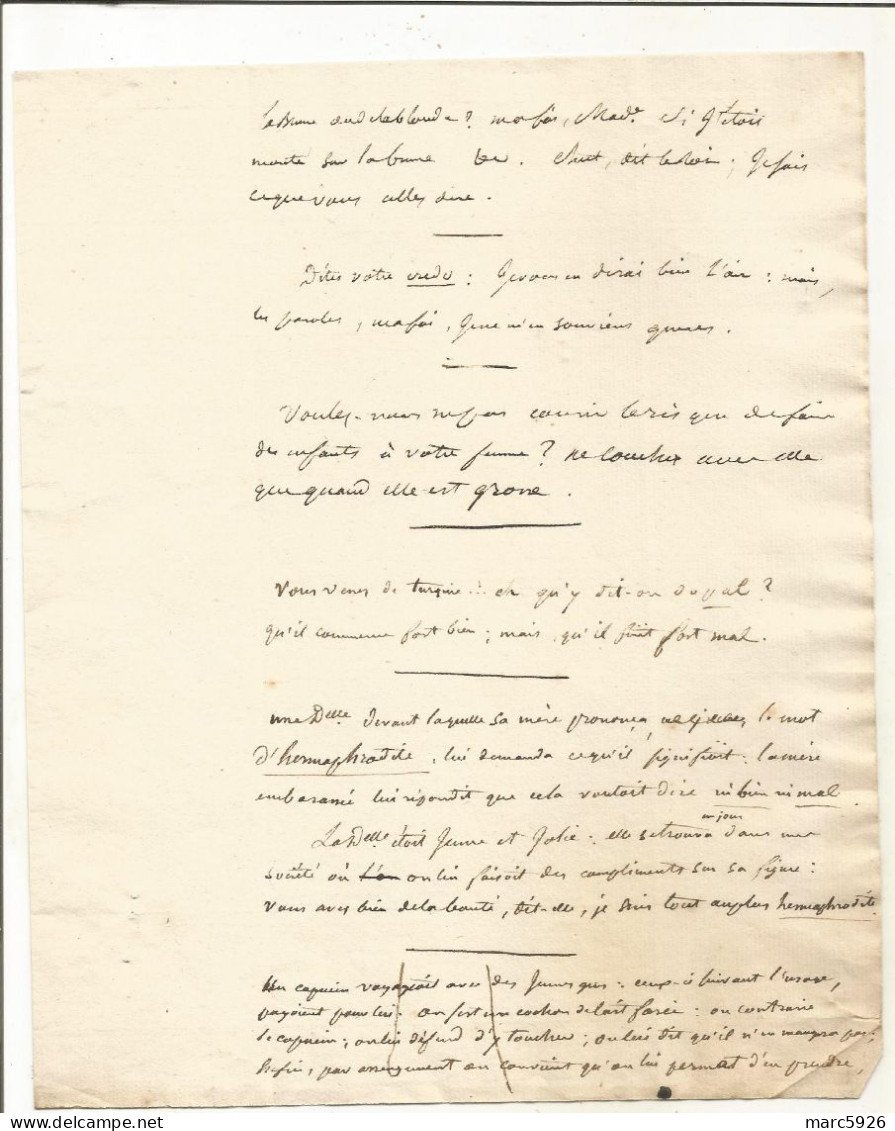 la brune ou de la blonde ? ma foi, Mad.e Si J'étois
monté sur la brune &c. Chut, dit ; Je sais
ce que vous alles dire.
Dites votre credo : Je vous en dirai bien l'air : mais,
les paroles, ma foi, Je ne m'en souviens gueres.
Voules-vous ne pas courir le risque de faire
des enfants à votre femme ? ne couchés avec elle
que quand elle est grosse.
Vous venes de turquie : eh qu'y dit-on du pal ?
qu'il commence fort bien ; mais, qu'il finit fort mal.
une Delle devant laquelle sa mère prononça, le mot
d'hermaphrodite, lui demanda ce qu'il signifioit : la mère
embarassé lui répondit que cela vouloit dire ni bien ni mal
un jour
La Delle étoit Jeune et Jolie : elle se trouva dans une
société où l'on on lui faisoit des compliments sur sa figure :
vous aves bien de la bonté, dit-elle, je suis tout au plus hermaphrodite
un capucin voyageoit avec des Jeunes gens : ceux-ci suivant l'usage,
payoient pour lui : on sert un cochon de lait farci : on contrarie
le capucin ; on lui défend d'y toucher ; on lui dit qu'il n'en mangera pas ;
Enfin, par arrangement on convient qu'on lui permet d'en prendre,
marc5926